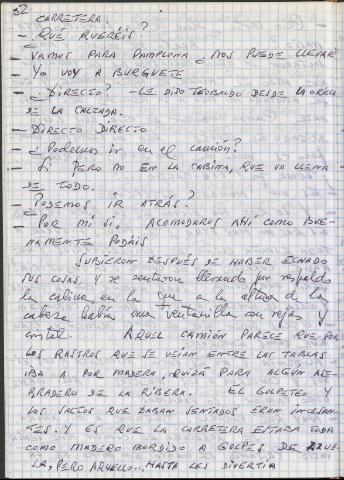 52
CARRETERA.
- ¿QUÉ QUERÉIS?
- VAMOS PARA PAMPLONA ¿NOS PUEDE LLEVAR
- YO VOY A BURGUETE
- ¿DIRECTO? - LE DIJO TEOBALDO DESDE LA ORILLA
DE LA CALZADA.
- DIRECTO DIRECTO
- ¿Podemos ir en el camión?
- SI PERO NO EN LA CABINA, QUE VA LLENA
DE TODO.
- ¿PODEMOS IR ATRÁS?
- POR MI SI. ACOMODAROS AHÍ COMO BUE-
NAMENTE PODÁIS
SUBIERON DESPUÉS DE HABER ECHADO
sus cosas, y se sentaron llevando por respaldo
la cabina, en la que a la altura de la
cabeza había una ventanilla con rejas y
cristal. AQUEL CAMIÓN PARECE QUE POR
LOS RASTROS QUE SE VEIAN ENTRE LAS TABLAS
IBA A POR MADERA, QUIZÁ PARA ALGÚN ASE-
RRADERO DE LA RIBERA. EL GOLPETEO Y
LOS SALTOS QUE DABAN SENTADOS ERAN INCESAN-
TES. Y ES QUE LA CARRETERA ESTABA TODA
COMO MADERO MORDIDO A GOLPES DE AZUE-
LA, PERO AQUELLO... HASTA LES DIVERTIA